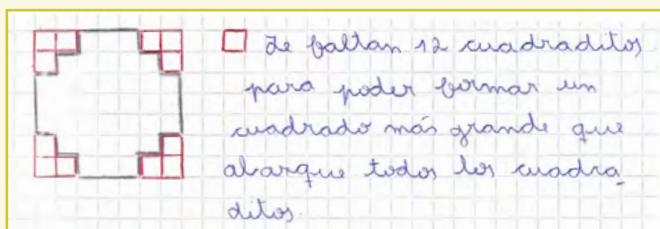 Le faltan 12 cuadraditos
para poder formar un
cuadrado más grande que
abarque todos los cuadra_
ditos.